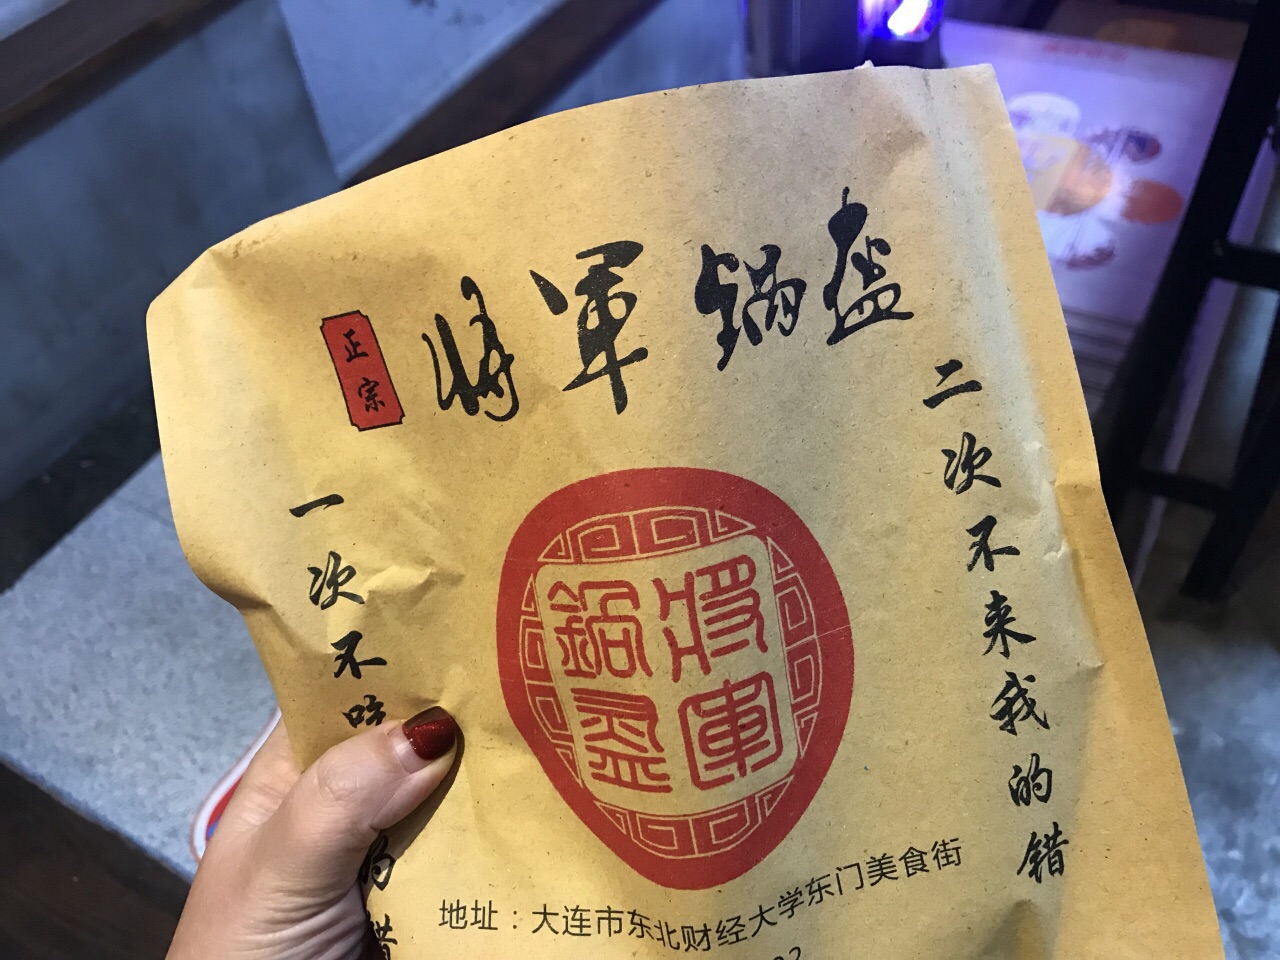 正宗
将军锅盔
一次不吃
的错
二次不来我的错
将军
锅盔
地址：大连市东北财经大学东门美食街